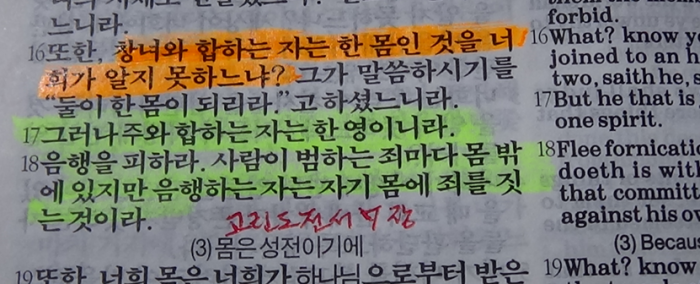 느니라.
16또한, 창녀와 합하는 자는 한 몸인 것을 너
희가 알지 못하느냐? 그가 말씀하시기를
“둘이 한 몸이 되리라.”고 하셨느니라.
17그러나 주와 합하는 자는 한 영이니라.
18음행을 피하라. 사람이 범하는 죄마다 몸 밖
에 있지만 음행하는 자는 자기 몸에 죄를 짓
는 것이라.
고린도전서 6장
(3) 몸은 성전이기에
19또한, 너희 몸은 너희가 하나님으로부터 받은
forbid.
16What? know y
joined to an h
two, saith he, s
17But he that is
one spirit.
18Flee fornicatio
doeth is with
that committ
against his o
(3) Becau
19What? know